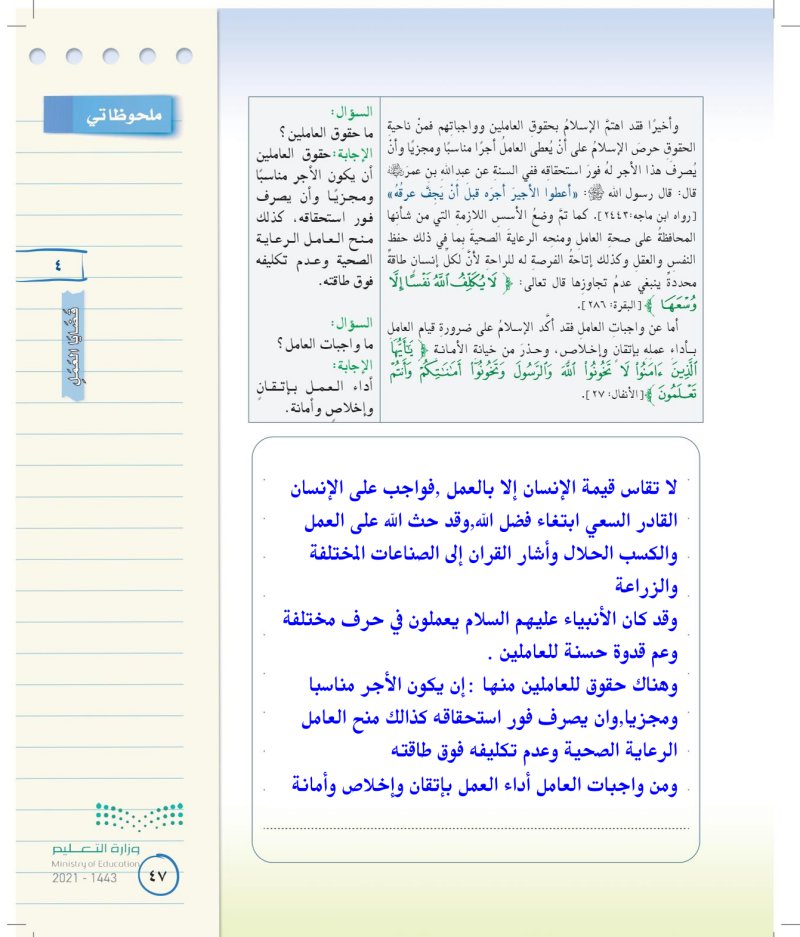 ملحوظاتي
٤
قضايا العمل
وأخيرًا فقد اهتمَّ الإسلامُ بحقوق العاملين وواجباتهم فمنْ ناحيةِ
الحقوقِ حرصَ الإسلامُ على أنْ يُعطى العاملُ أجرًا مناسبًا ومجزيًا وأنْ
يُصرفَ هذا الأجر لهُ فورَ استحقاقِه ففي السنةِ عن عبدالله بن عمرَ ﷺ
قال: قال رسول الله ﷺ: «أعطوا الأجيرَ أجرَه قبلَ أنْ يَجفَّ عرقُهُ»
[رواه ابن ماجه:٢٤٤٣]. كما تمَّ وضعُ الأسسِ اللازمةِ التي من شأنِها
المحافظةُ على صحةِ العاملِ ومنحه الرعايةَ الصحيةَ بما في ذلك حفظ
النفسِ والعقلِ وكذلك إتاحةُ الفرصةِ له للراحةِ لأنَّ لكلِّ إنسانٍ طاقةً
محددةً ينبغي عدمُ تجاوزِها قال تعالى: ﴿ لَا يُكَلِّفُ اللَّهُ نَفْسًا إِلَّا
وُسْعَهَا ﴾ [البقرة: ٢٨٦].
أما عن واجباتِ العاملِ فقد أكَّد الإسلامُ على ضرورةِ قيام العاملِ
بـأداء عملِه بإتقان وإخلاص، وحـذرَ من خيانةِ الأمانـة ﴿ يَٰٓأَيُّهَا
ٱلَّذِينَ ءَامَنُوا۟ لَا تَخُونُوا۟ ٱللَّهَ وَٱلرَّسُولَ وَتَخُونُوٓا۟ أَمَٰنَٰتِكُمْ وَأَنتُمْ
تَعْلَمُونَ ﴾ [الأنفال: ٢٧].
السؤال:
ما حقوق العاملين؟
الإجابة: حقوق العاملين
أن يكون الأجر مناسبًا
ومجـزيًـا وأن يصرف
فـور استحقاقه، كذلك
منـح العـامـل الـرعـايـة
الصحية وعـدم تكليفه
فوق طاقته.
السؤال:
ما واجبات العامل؟
الإجابة:
أداء العمـل بـإتـقـانٍ
وإخلاصٍ وأمانة.
لا تقاس قيمة الإنسان إلا بالعمل ,فواجب على الإنسان
القادر السعي ابتغاء فضل الله,وقد حث الله على العمل
والكسب الحلال وأشار القران إلى الصناعات المختلفة
والزراعة
وقد كان الأنبياء عليهم السلام يعملون في حرف مختلفة
وعم قدوة حسنة للعاملين .
وهناك حقوق للعاملين منها :إن يكون الأجر مناسبا
ومجزيا,وان يصرف فور استحقاقه كذالك منح العامل
الرعاية الصحية وعدم تكليفه فوق طاقته
ومن واجبات العامل أداء العمل بإتقان وإخلاص وأمانة
وزارة التـعـلـيم
Ministry of Education
2021 - 1443
٤٧